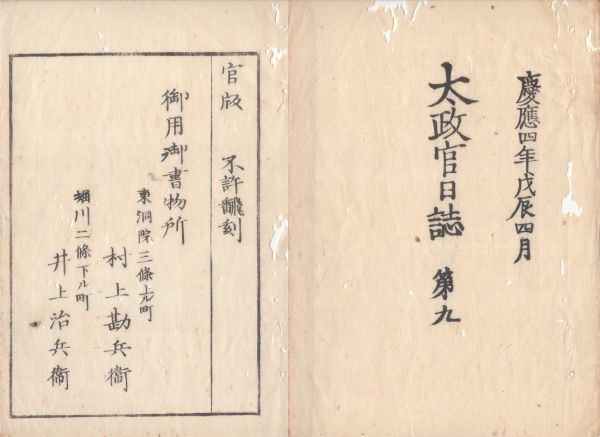 慶應四年戊辰四月
太政官日誌 第九
官版 不許飜刻
御用御書物所
東洞院三條上ル町
村上勘兵衞
堀川二條下ル町
井上治兵衞